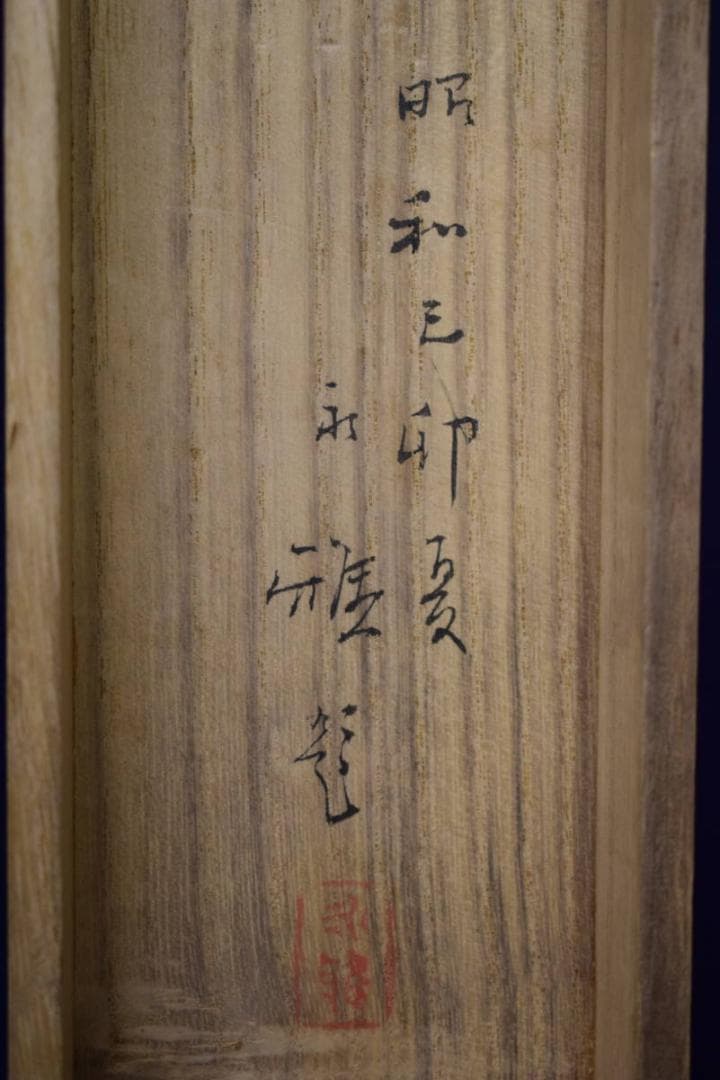 昭和己卯夏
永雅題
永雅